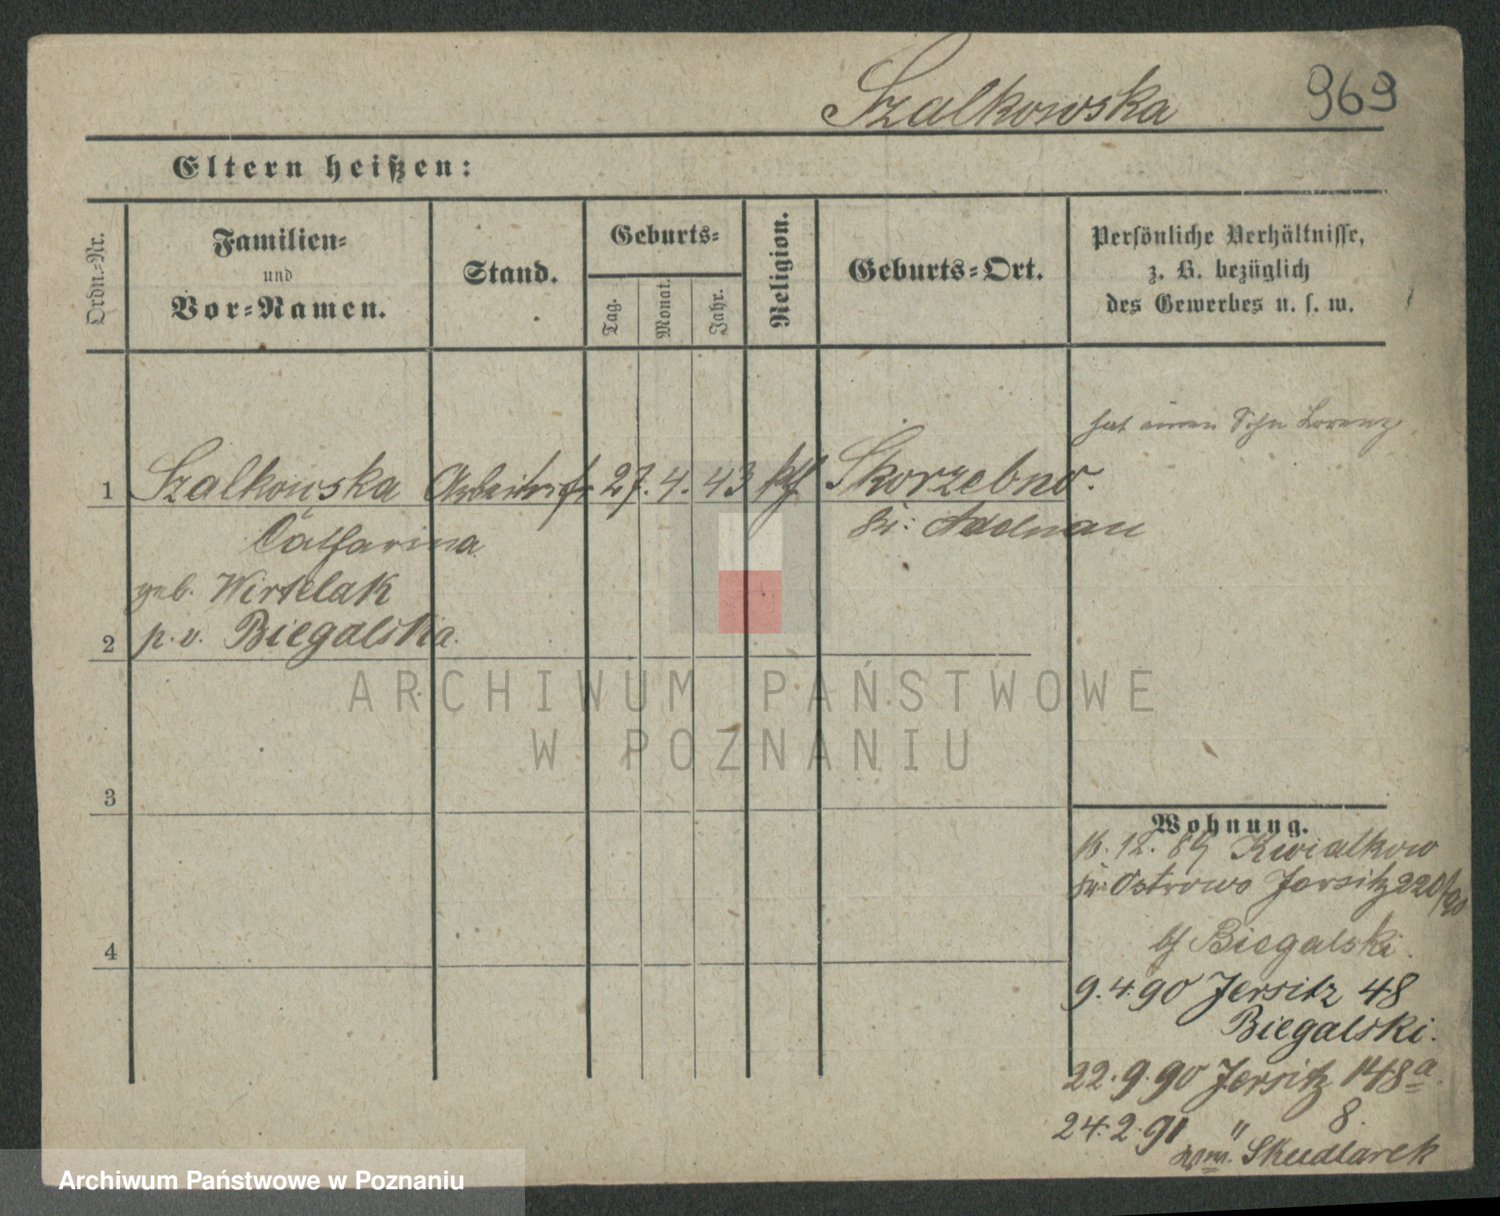 Szalkowska 969
Eltern heißen:
Ordn.-Nr.
Familien-
und
Vor-Namen.
Stand.
Geburts-
Tag.
Monat.
Jahr.
Religion.
Geburts-Ort.
Persönliche Verhältnisse,
z. B. bezüglich
des Gewerbes u. s. w.
hat einen Sohn Lorenz
1 Szalkowska Arbeitrsfr. 27. 4. 43 kth Skorzebno.
Catharina Kr. Adelnau
geb. Wirtelak
2 p. v. Biegalska.
3
4
Wohnung.
16. 12. 89 Kwialkow
Kr. Ostrowo Jersitz 220/90
bf Biegalski.
9.4.90 Jersitz 48
Biegalski.
22.9.90 Jersitz 148a.
24.2.91 " 8.
Skudlarek
ARCHIWUM PAŃSTWOWE
W POZNANIU
Archiwum Państwowe w Poznaniu